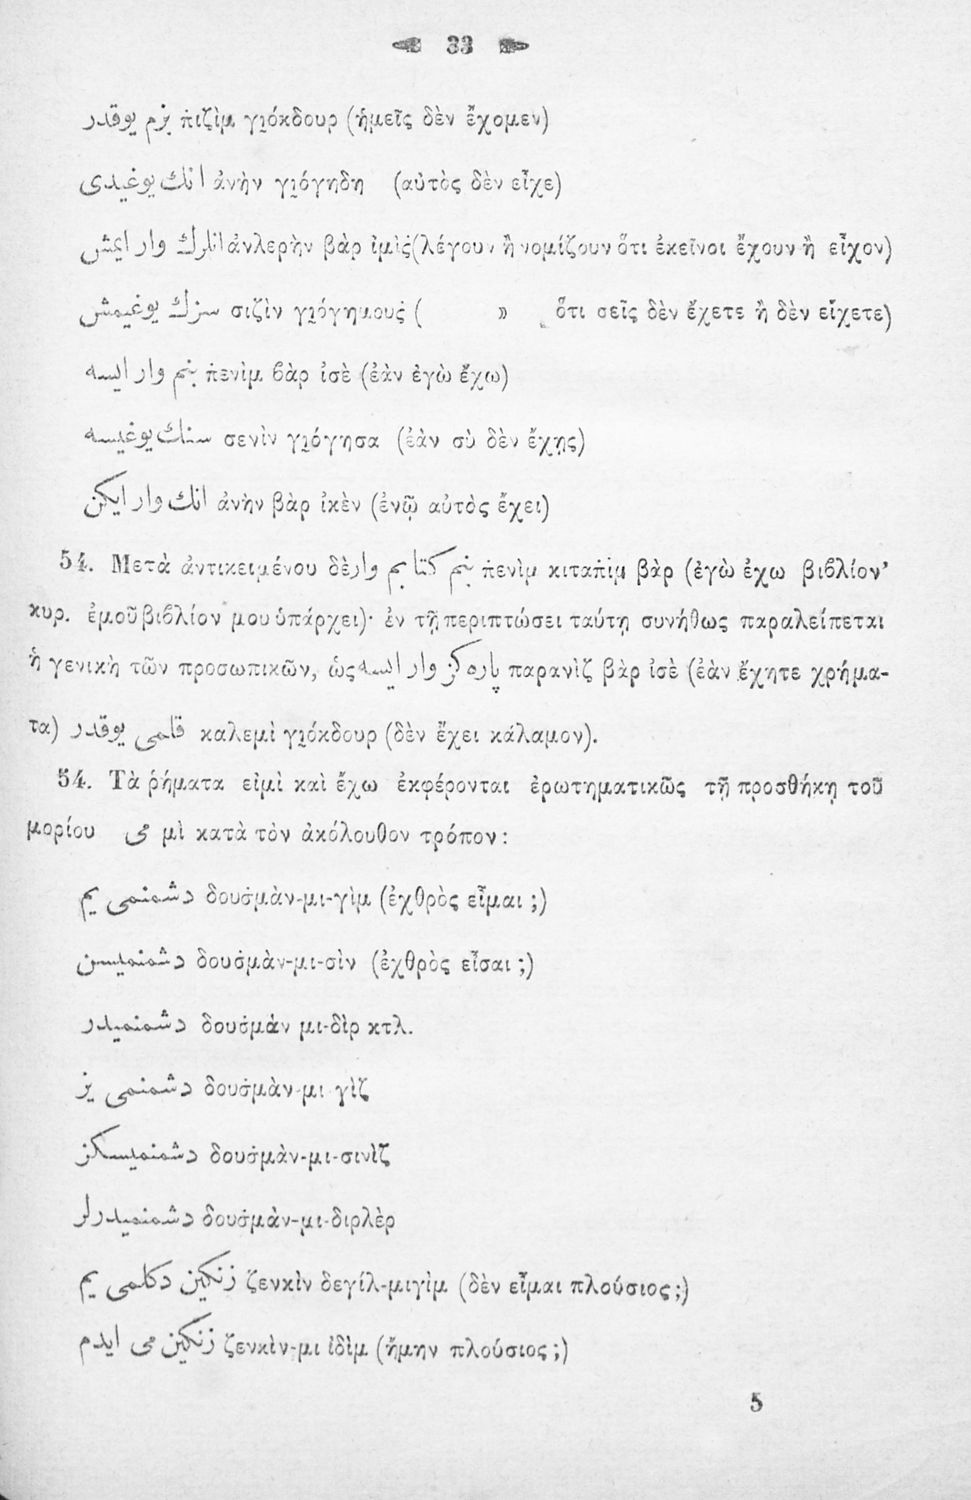 33
بزم يوقدر πιζὶμ γιόκδουρ (ἡμεῖς δὲν ἔχομεν)
انك يوغيدى ἀνὴν γιόγηδη (αὐτὸς δὲν εἶχε)
انلرك وار ايمش ἀνλερὴν βὰρ ἰμὶς (λέγουν ἢ νομίζουν ὅτι ἐκεῖνοι ἔχουν ἢ εἶχον)
سزك يوغيمش σιζὶν γιόγημους ( » ὅτι σεῖς δὲν ἔχετε ἢ δὲν εἴχετε)
بنم وار ايسه πενὶμ βὰρ ἰσὲ (ἐὰν ἐγὼ ἔχω)
سنك يوغيسه σενὶν γιόγησα (ἐὰν σὺ δὲν ἔχῃς)
انك وار ايكن ἀνὴν βὰρ ἰκὲν (ἐνῷ αὐτὸς ἔχει)
54. Μετὰ ἀντικειμένου δὲ بنم كتابم وار πενὶμ κιταπὶμ βὰρ (ἐγὼ ἐχω βιβλίον'
κυρ. ἐμοῦ βιβλίον μου ὑπάρχει)· ἐν τῇ περιπτώσει ταύτῃ συνήθως παραλείπεται
ἡ γενικὴ τῶν προσωπικῶν, ὡς پاره كز وار ايسه παρανὶζ βὰρ ἰσὲ (ἐὰν ἔχητε χρήμα-
τα) قلمى يوقدر καλεμὶ γιόκδουρ (δὲν ἔχει κάλαμον).
54. Τὰ ῥήματα εἰμὶ καὶ ἔχω ἐκφέρονται ἐρωτηματικῶς τῇ προσθήκῃ τοῦ
μορίου مى μὶ κατὰ τὸν ἀκόλουθον τρόπον :
دشمنمى يم δουσμὰν-μι-γὶμ (ἐχθρὸς εἶμαι ;)
دشمنميسن δουσμὰν-μι-σὶν (ἐχθρὸς εἶσαι ;)
دشمنميدر δουσμὰν μι-δὶρ κτλ.
دشمنمى يز δουσμὰν-μι γὶζ
دشمنميسكز δουσμὰν-μι-σινὶζ
دشمنميدرلر δουσμὰν-μι-διρλὲρ
زنكين دكلمى يم ζενκὶν δεγίλ-μιγὶμ (δὲν εἶμαι πλούσιος ;)
زنكين مى ايدم ζενκὶν-μι ἰδὶμ (ἤμην πλούσιος ;)
5